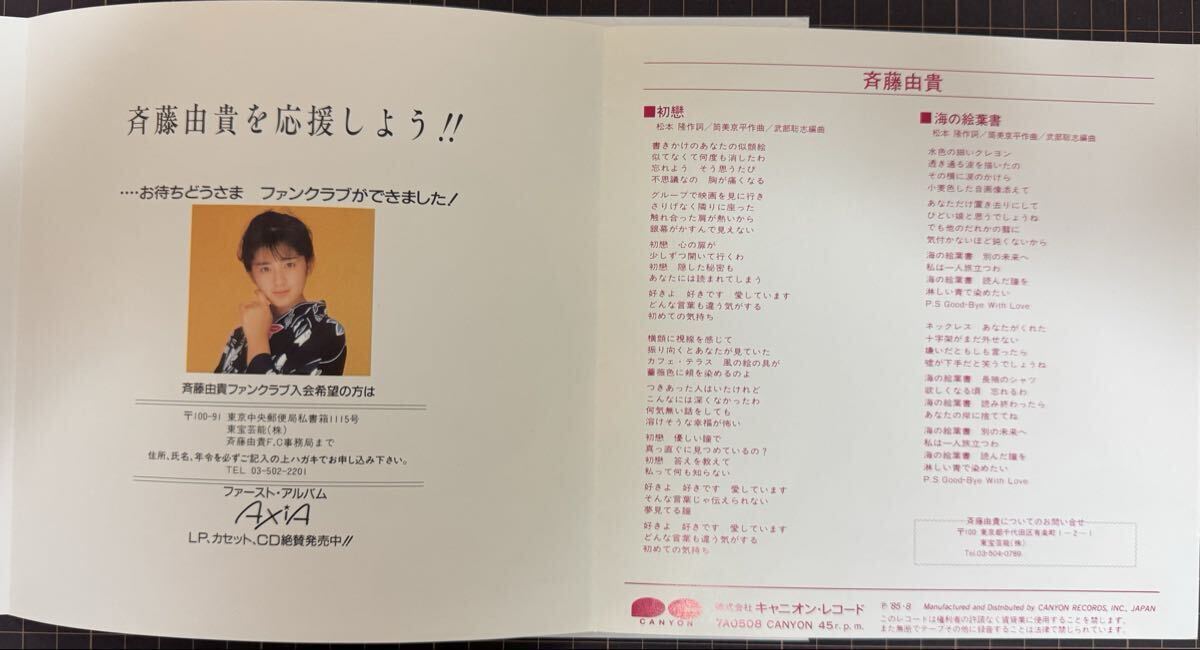 斉藤由貴を応援しよう!!
‥‥お待ちどうさま　ファンクラブができました!
斉藤由貴ファンクラブ入会希望の方は
〒100-91 東京中央郵便局私書箱1115号
東宝芸能(株)
斉藤由貴F.C事務局まで
住所、氏名、年令を必ずご記入の上ハガキでお申し込み下さい。
TEL 03-502-2201
ファースト・アルバム
AXIA
LP、カセット、CD絶賛発売中!!
斉藤由貴
■初戀
松本 隆作詞/筒美京平作曲/武部聡志編曲
書きかけのあなたの似顔絵
似てなくて何度も消したわ
忘れよう　そう思うたび
不思議なの　胸が痛くなる
グループで映画を見に行き
さりげなく隣りに座った
触れ合った肩が熱いから
銀幕がかすんで見えない
初戀　心の扉が
少しずつ開いて行くわ
初戀　隠した秘密も
あなたには読まれてしまう
好きよ　好きです　愛しています
どんな言葉も違う気がする
初めての気持ち
横顔に視線を感じて
振り向くとあなたが見ていた
カフェ・テラス　風の絵の具が
薔薇色に頬を染めるのよ
つきあった人はいたけれど
こんなには深くなかったわ
何気無い話をしても
溶けそうな幸福が怖い
初戀　優しい瞳で
真っ直ぐに見つめているの?
初戀　答えを教えて
私って何も知らない
好きよ　好きです　愛しています
そんな言葉じゃ伝えられない
夢見てる瞳
好きよ　好きです　愛しています
どんな言葉も違う気がする
初めての気持ち
■海の絵葉書
松本 隆作詞/筒美京平作曲/武部聡志編曲
水色の細いクレヨン
透き通る波を描いたの
その横に涙のかけら
小麦色した自画像添えて
あなただけ置き去りにして
ひどい娘と思うでしょうね
でも他のだれかの翳に
気付かないほど鈍くないから
海の絵葉書　別の未来へ
私は一人旅立つわ
海の絵葉書　読んだ瞳を
淋しい青で染めたい
P.S Good-Bye With Love
ネックレス　あなたがくれた
十字架がまだ外せない
嫌いだともしも言ったら
嘘が下手だと笑うでしょうね
海の絵葉書　長袖のシャツ
欲しくなる頃　忘れるわ
海の絵葉書　読み終わったら
あなたの岸に捨ててね
海の絵葉書　別の未来へ
私は一人旅立つわ
海の絵葉書　読んだ瞳を
淋しい青で染めたい
P.S Good-Bye With Love
斉藤由貴についてのお問い合せ
〒100 東京都千代田区有楽町1-2-1
東宝芸能(株)
Tel.03-504-0789
CANYON
株式会社 キャニオン・レコード
7A0508 CANYON 45r.p.m.
Ⓟ '85・8 Manufactured and Distributed by CANYON RECORDS, INC., JAPAN
このレコードは権利者の許諾なく賃貸業に使用することを禁じます。
また無断でテープその他に録音することは法律で禁じられています。